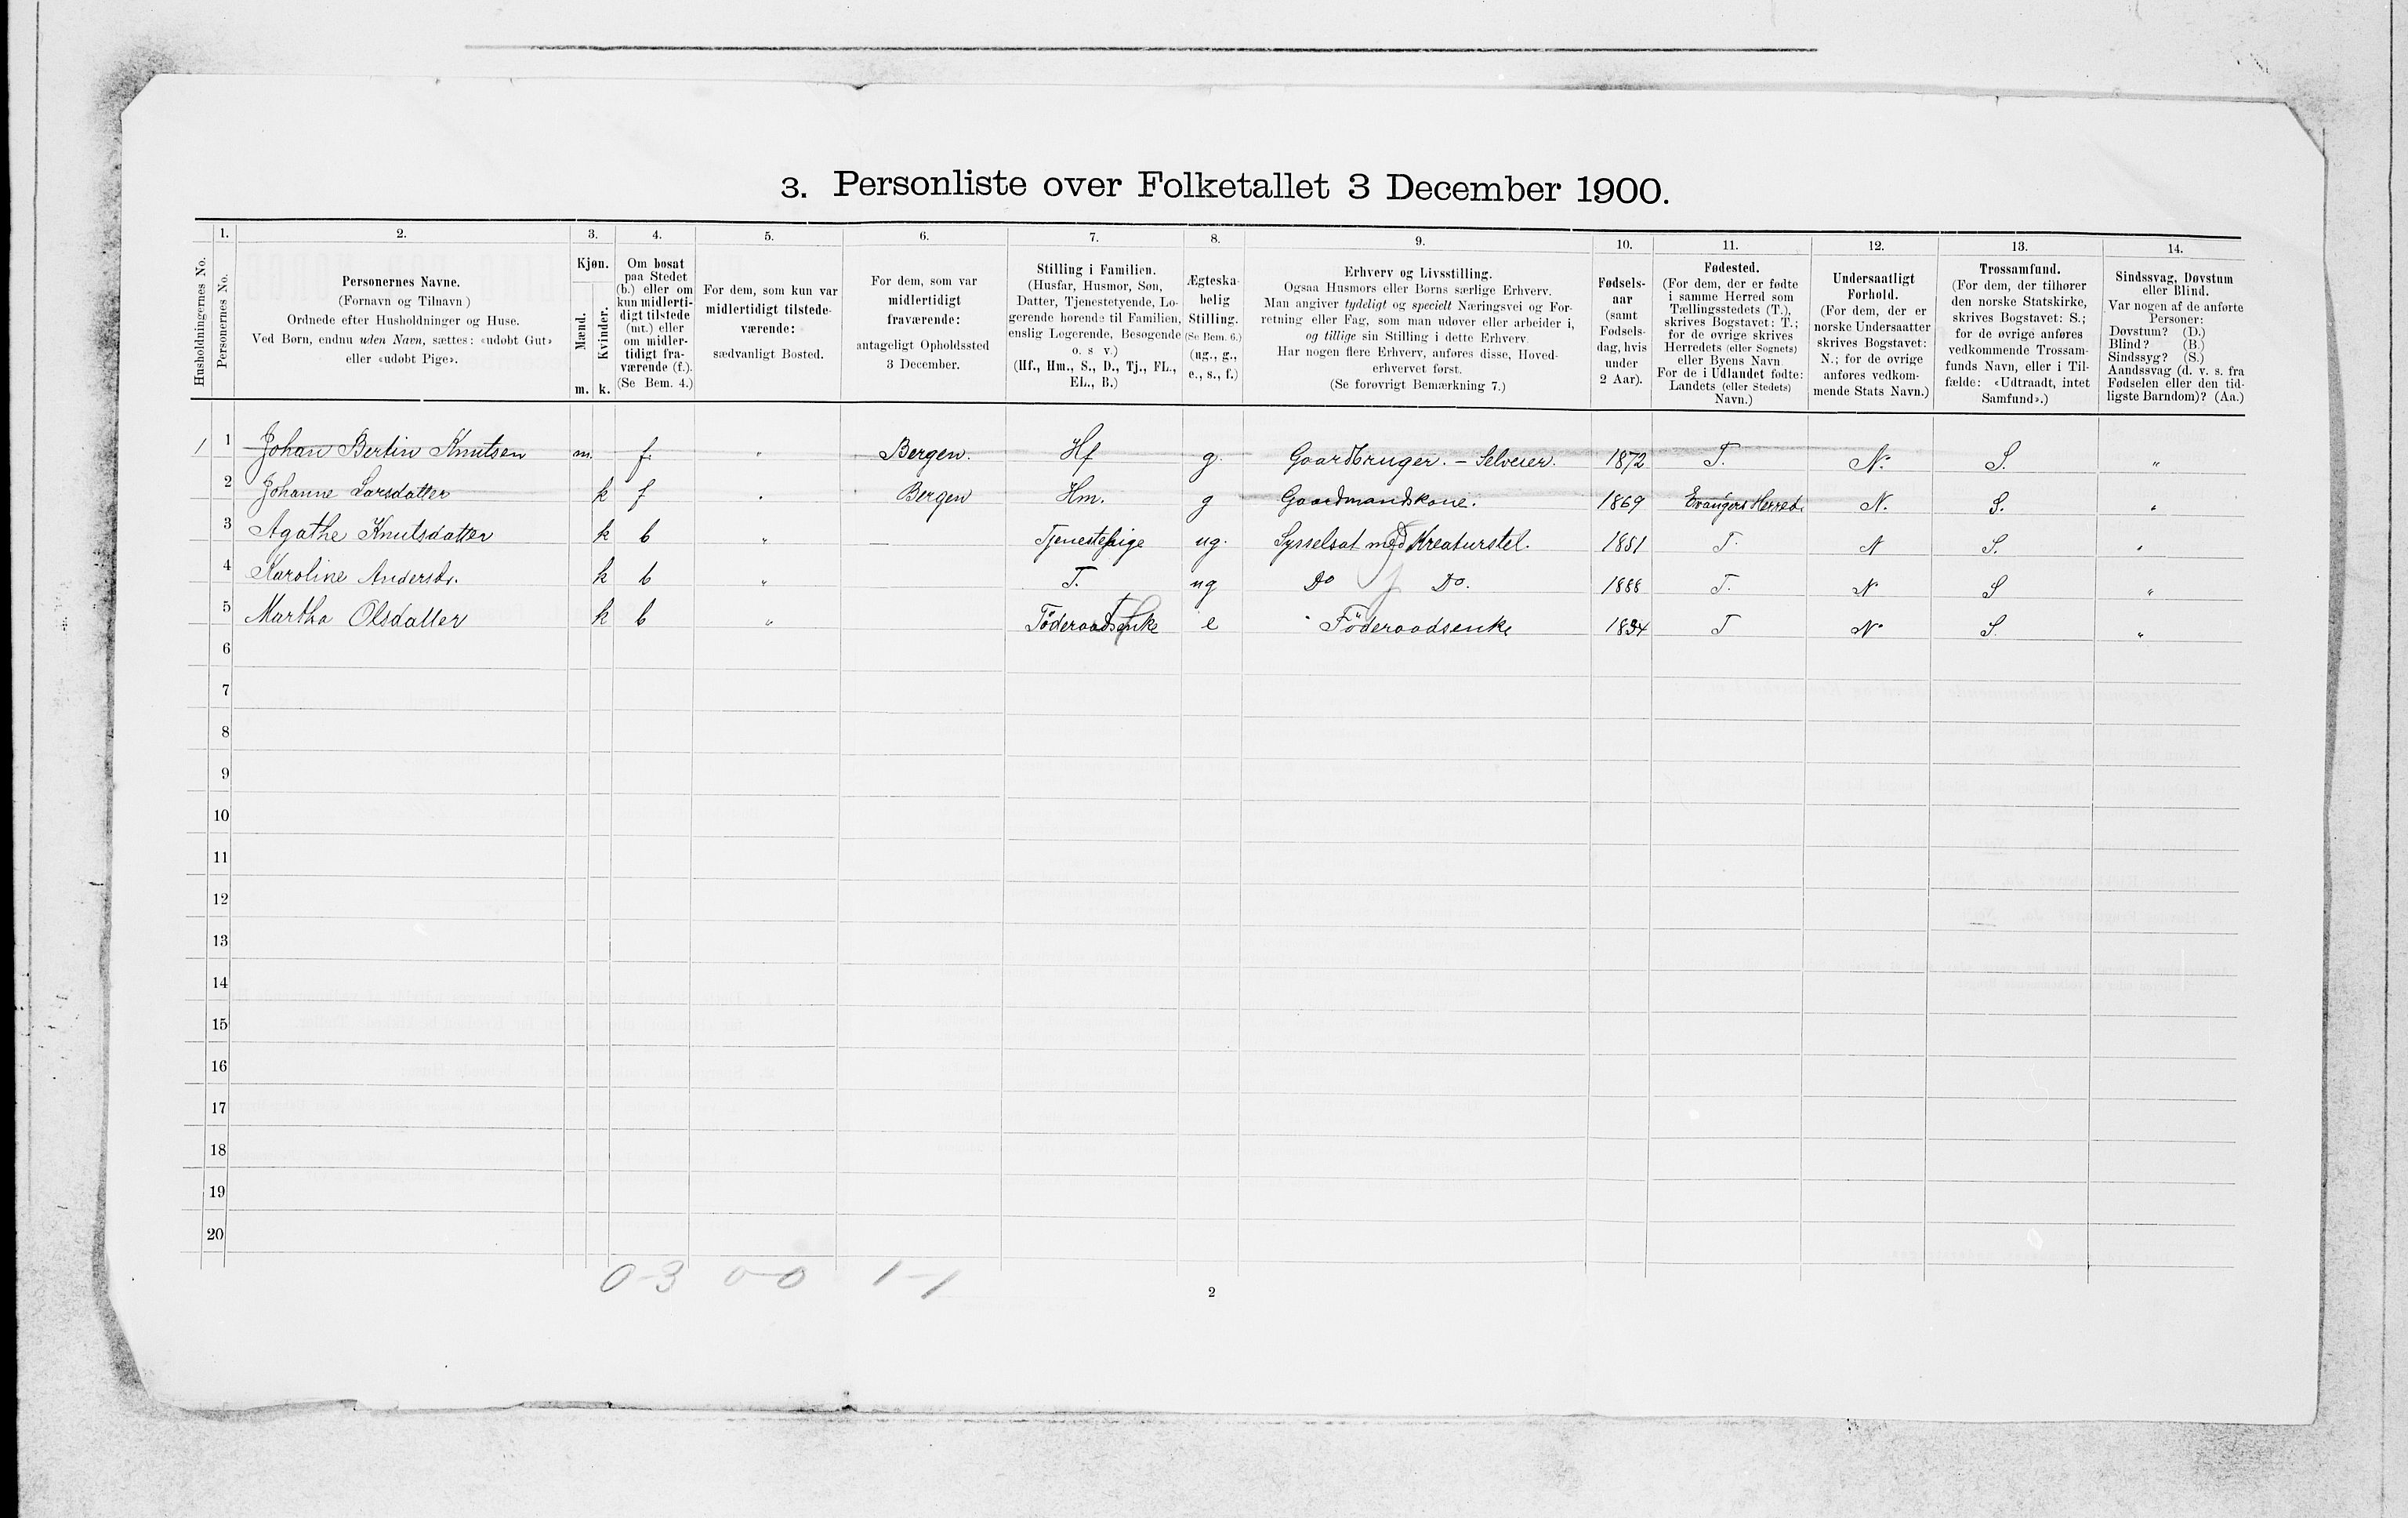 3. Personliste over Folketallet 3 December 1900.
1. 2. 3. 4. 5. 6. 7. 8. 9. 10. 11. 12. 13. 14.
Husholdningernes No.
Personernes No.
Personernes Navne.
(Fornavn og Tilnavn)
Ordnede efter Husholdninger og Huse.
Ved Børn, endnu uden Navn, sættes: «udøbt Gut»
eller «udøbt Pige».
Kjøn.
Mænd.
Kvinder.
m. k.
Om bosat
paa Stedet
(b.) eller om
kun midlerti-
digt tilstede
(mt.) eller
om midler-
tidigt fra-
værende (f.).
(Se Bem. 4.)
For dem, som kun var
midlertidigt tilstede-
værende:
sædvanligt Bosted.
For dem, som var
midlertidigt
fraværende:
antageligt Opholdssted
3 December.
Stilling i Familien.
(Husfar, Husmor, Søn,
Datter, Tjenestetyende, Lo-
gerende hørende til Familien,
enslig Logerende, Besøgende
o. s v.)
(Hf., Hm., S., D., Tj., FL.,
EL., B.)
Ægteska-
belig
Stilling.
(Se Bem. 6.)
(ug., g.,
e., s., f.)
Erhverv og Livsstilling.
Ogsaa Husmors eller Børns særlige Erhverv.
Man angiver tydeligt og specielt Næringsvei og For-
retning eller Fag, som man udøver eller arbeider i,
og tillige sin Stilling i dette Erhverv.
Har nogen flere Erhverv, anføres disse, Hoved-
erhvervet først.
(Se forøvrigt Bemærkning 7.)
Fødsels-
aar
(samt
Fødsels-
dag, hvis
under
2 Aar).
Fødested.
(For dem, der er fødte
i samme Herred som
Tællingsstedets (T.),
skrives Bogstavet: T.;
for de øvrige skrives
Herredets (eller Sognets)
eller Byens Navn
For de i Udlandet fødte:
Landets (eller Stedets)
Navn.)
Undersaatligt
Forhold.
(For dem, der er
norske Undersaatter
skrives Bogstavet:
N.; for de øvrige
anføres vedkom-
mende Stats Navn.)
Trossamfund.
(For dem, der tilhører
den norske Statskirke,
skrives Bogstavet: S.;
for de øvrige anføres
vedkommende Trossam-
funds Navn, eller i Til-
fælde: «Udtraadt, intet
Samfund».)
Sindssvag, Døvstum
eller Blind.
Var nogen af de anførte
Personer:
Døvstum? (D.)
Blind? (B.)
Sindssyg? (S.)
Aandssvag (d. v. s. fra
Fødselen eller den tid-
ligste Barndom)? (Aa.)
1 1 Johan Bertin Knutsen m. f. " Bergen. Hf g. Gaardbruger. – Selveier. 1872 T. N. S. "
2 Johanne Larsdatter k f " Bergen Hm. g Gaardmandskone. 1869 Evangers Herred. N. S. "
3 Agathe Knutsdatter k b " — Tjenestepige ug. Sysselsat med Kreaturstel. 1881 T. N S. "
4 Karoline Andersdr. k b " T. ug Do Do. 1888 T. N S "
5 Martha Olsdatter k b " Föderaadsenke e Föderaadsenke 1834 T N S "
6
7
8
9
10
11
12
13
14
15
16
17
18
19
20
0-3 0-0 1-1
2